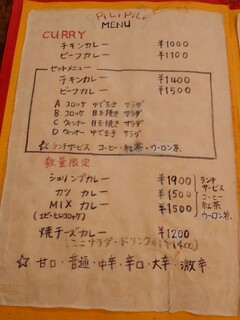 PiLi PiLi
MENU
CURRY
チキンカレー ¥1000
ビーフカレー ¥1100
セットメニュー
チキンカレー ¥1400
ビーフカレー ¥1500
A コロッケ ゆで玉子 サラダ
B コロッケ 目玉焼き サラダ
C ウィンナー 目玉焼き サラダ
D ウィンナー ゆで玉子 サラダ
☆ランチサービス コーヒー・紅茶・ウーロン茶
数量限定
シュリンプカレー ¥1900
カツ カレー ¥1500
MIX カレー ¥1500
(エビ・ヒレ・コロッケ)
ランチ
サービス
コーヒー
紅茶
ウーロン茶
焼チーズカレー ¥1200
☆ 甘口・普通・中辛・辛口・大辛・激辛